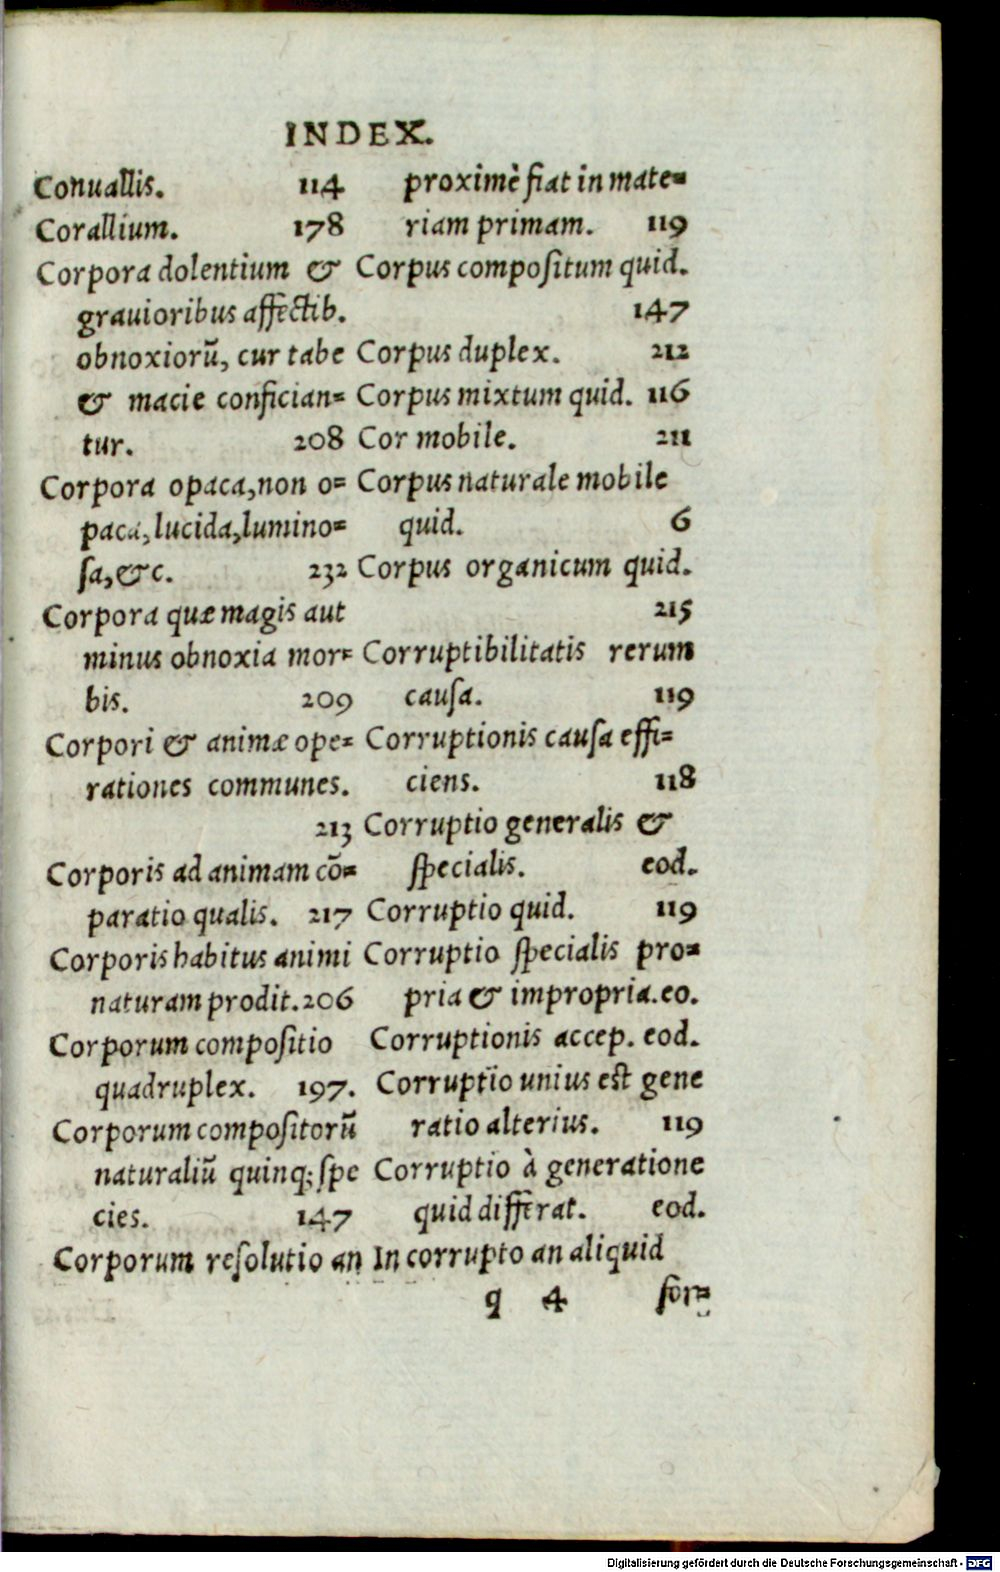 INDEX.
Conuallis. 114
Corallium. 178
Corpora dolentium &
grauioribus affectib.
obnoxiorū, cur tabe
& macie confician=
tur. 208
Corpora opaca, non o=
paca, lucida, lumino=
sa, &c. 232
Corpora quæ magis aut
minus obnoxia mor=
bis. 209
Corpori & animæ ope=
rationes communes.
213
Corporis ad animam cō=
paratio qualis. 217
Corporis habitus animi
naturam prodit. 206
Corporum compositio
quadruplex. 197.
Corporum compositorū
naturaliū quinq; spe
cies. 147
Corporum resolutio an
proximè fiat in mate=
riam primam. 119
Corpus compositum quid.
147
Corpus duplex. 212
Corpus mixtum quid. 116
Cor mobile. 211
Corpus naturale mobile
quid. 6
Corpus organicum quid.
215
Corruptibilitatis rerum
causa. 119
Corruptionis causa effi=
ciens. 118
Corruptio generalis &
specialis. eod.
Corruptio quid. 119
Corruptio specialis pro=
pria & impropria. eo.
Corruptionis accep. eod.
Corruptio unius est gene
ratio alterius. 119
Corruptio à generatione
quid differat. eod.
In corrupto an aliquid
q 4 for=
Digitalisierung gefördert durch die Deutsche Forschungsgemeinschaft - DFG